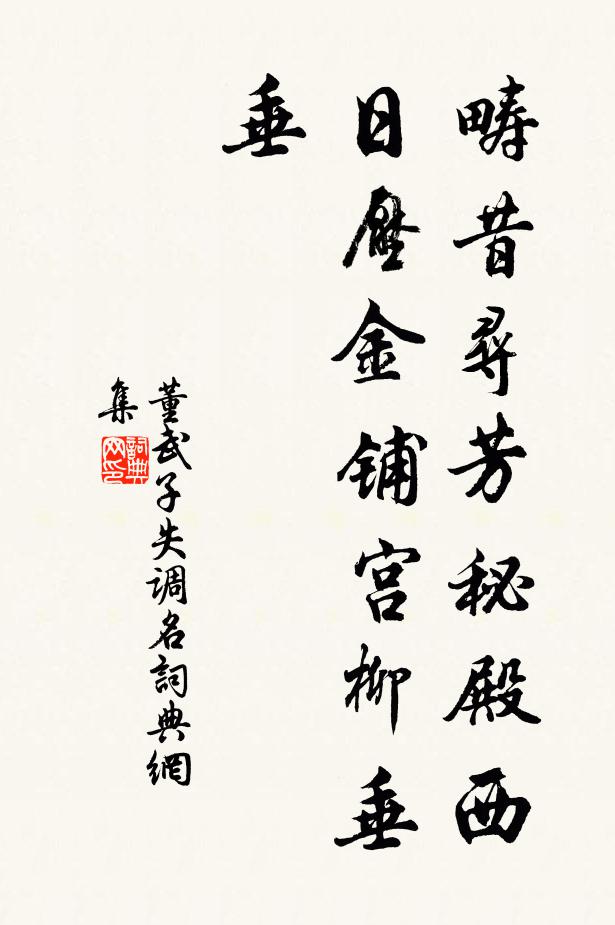 疇昔尋芳秘殿西
日壓金鋪宮柳垂
垂
董武子失调名詞典網
集
詞典網印